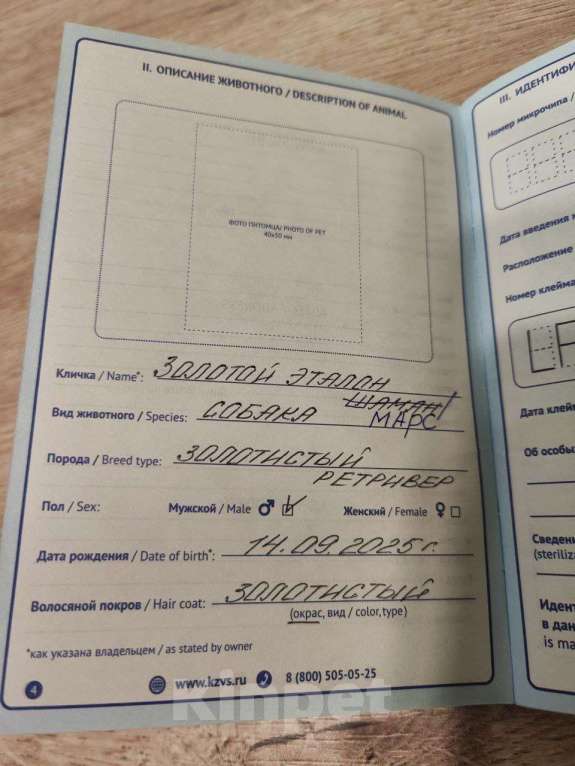 II. ОПИСАНИЕ ЖИВОТНОГО / DESCRIPTION OF ANIMAL
ФОТО ПИТОМЦА/ PHOTO OF PET
40x50 мм
Кличка / Name*: ЗОЛОТОЙ ЭТАЛОН
ШАМАН
Вид животного / Species: СОБАКА МАРС
Порода / Breed type: ЗОЛОТИСТЫЙ
РЕТРИВЕР
Пол / Sex: Мужской / Male ♂ Женский / Female ♀
Дата рождения / Date of birth*: 14.09.2025г.
Волосяной покров / Hair coat: ЗОЛОТИСТЫЙ
(окрас, вид / color, type)
*как указана владельцем / as stated by owner
4 www.kzvs.ru 8 (800) 505-05-25
Kinpet
III. ИДЕНТИФИ
Номер микрочипа /
Дата введения
Расположение
Номер клейма
Дата клей
Об особы
Сведени
(steriliz
Идент
в дан
is ma